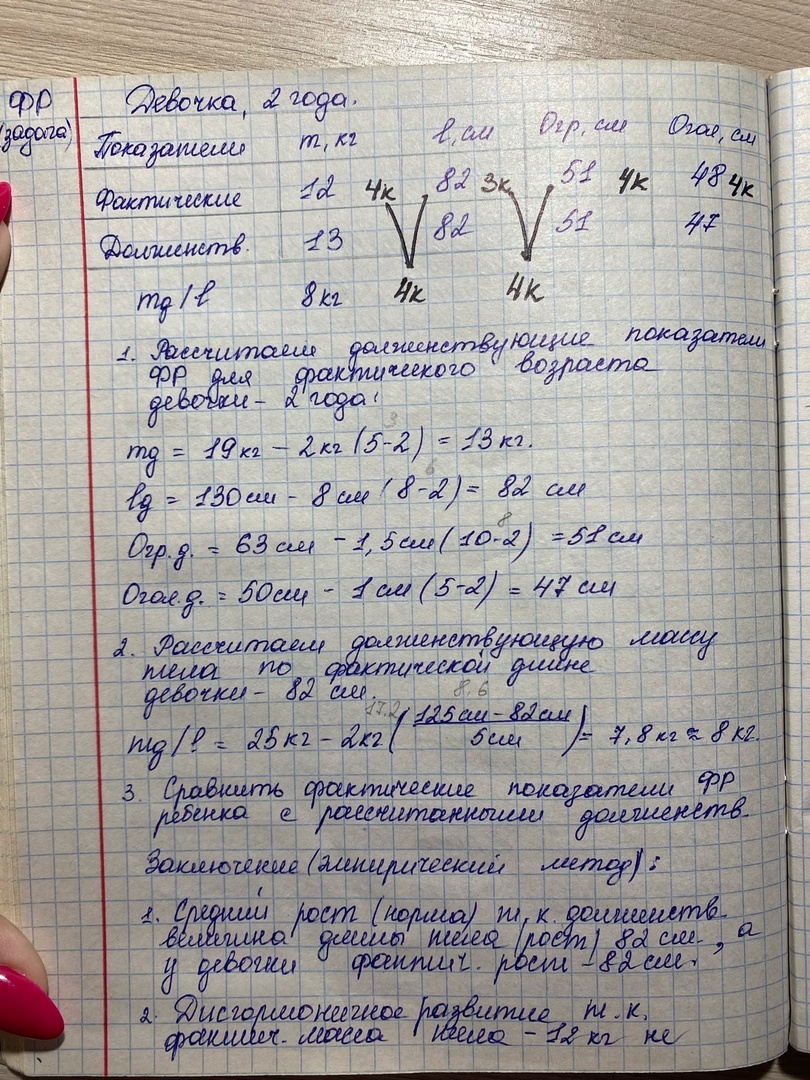 ФР
(задача)
Девочка, 2 года.
Показатели m, кг l, см Огр, см Огол, см
Фактические 12 4к 82 3к 51 4к 48 4к
Долженств. 13 82 51 47
mд/l 8кг 4к 4к
1. Рассчитаем долженствующие показатели
ФР для фактического возраста
девочки - 2 года:
3
mд = 19кг - 2кг (5-2) = 13кг.
6
lд = 130см - 8см (8-2) = 82 см
8
Огр.д. = 63см - 1,5см (10-2) = 51см
Огол.д. = 50см - 1см (5-2) = 47см
2. Рассчитаем долженствующую массу
тела по фактической длине
девочки - 82 см.
17,2 8,6
mд/l = 25кг - 2кг (125см - 82см / 5см) = 7,8кг ≈ 8кг.
3. Сравнить фактические показатели ФР
ребенка с рассчитанными долженств.
Заключение (эмпирический метод):
1. Средний рост (норма) т.к. долженств.
величина длины тела (рост) 82 см, а
у девочки фактич. рост - 82см.
2. Дисгармоничное развитие т.к.
фактич. масса тела - 12кг не